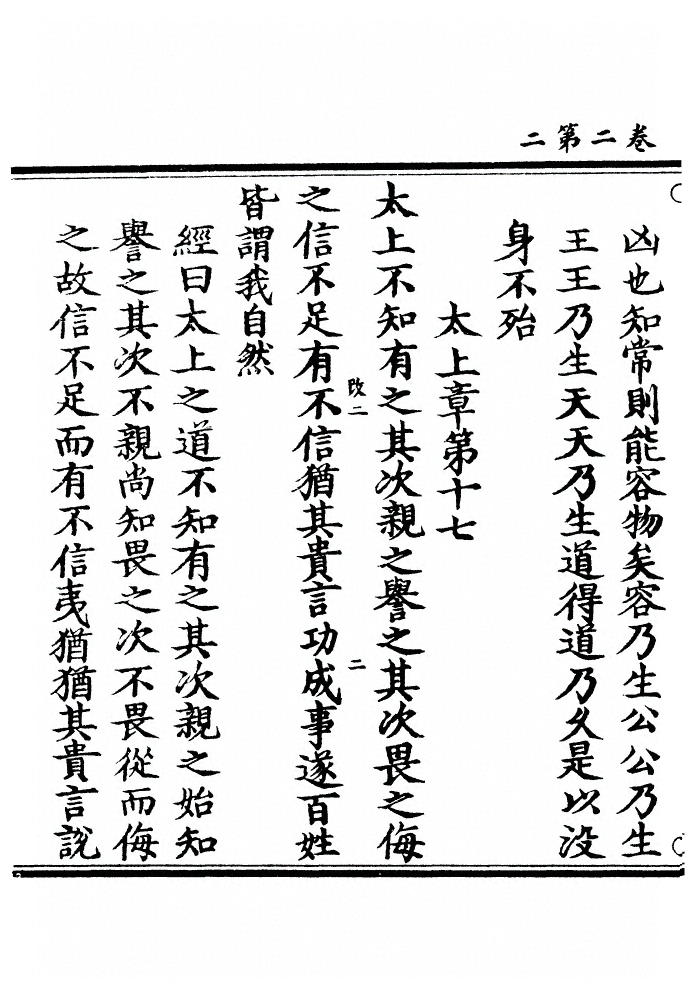 二第二卷
凶也知常則能容物矣容乃生公公乃生
王王乃生天天乃生道得道乃久是以没
身不殆
太上章第十七
太上不知有之其次親之譽之其次畏之侮
之信不足有不信猶其貴言功成事遂百姓
改二
二
皆謂我自然
經曰太上之道不知有之其次親之始知
譽之其次不親尚知畏之次不畏從而侮
之故信不足而有不信夷猶猶其貴言說